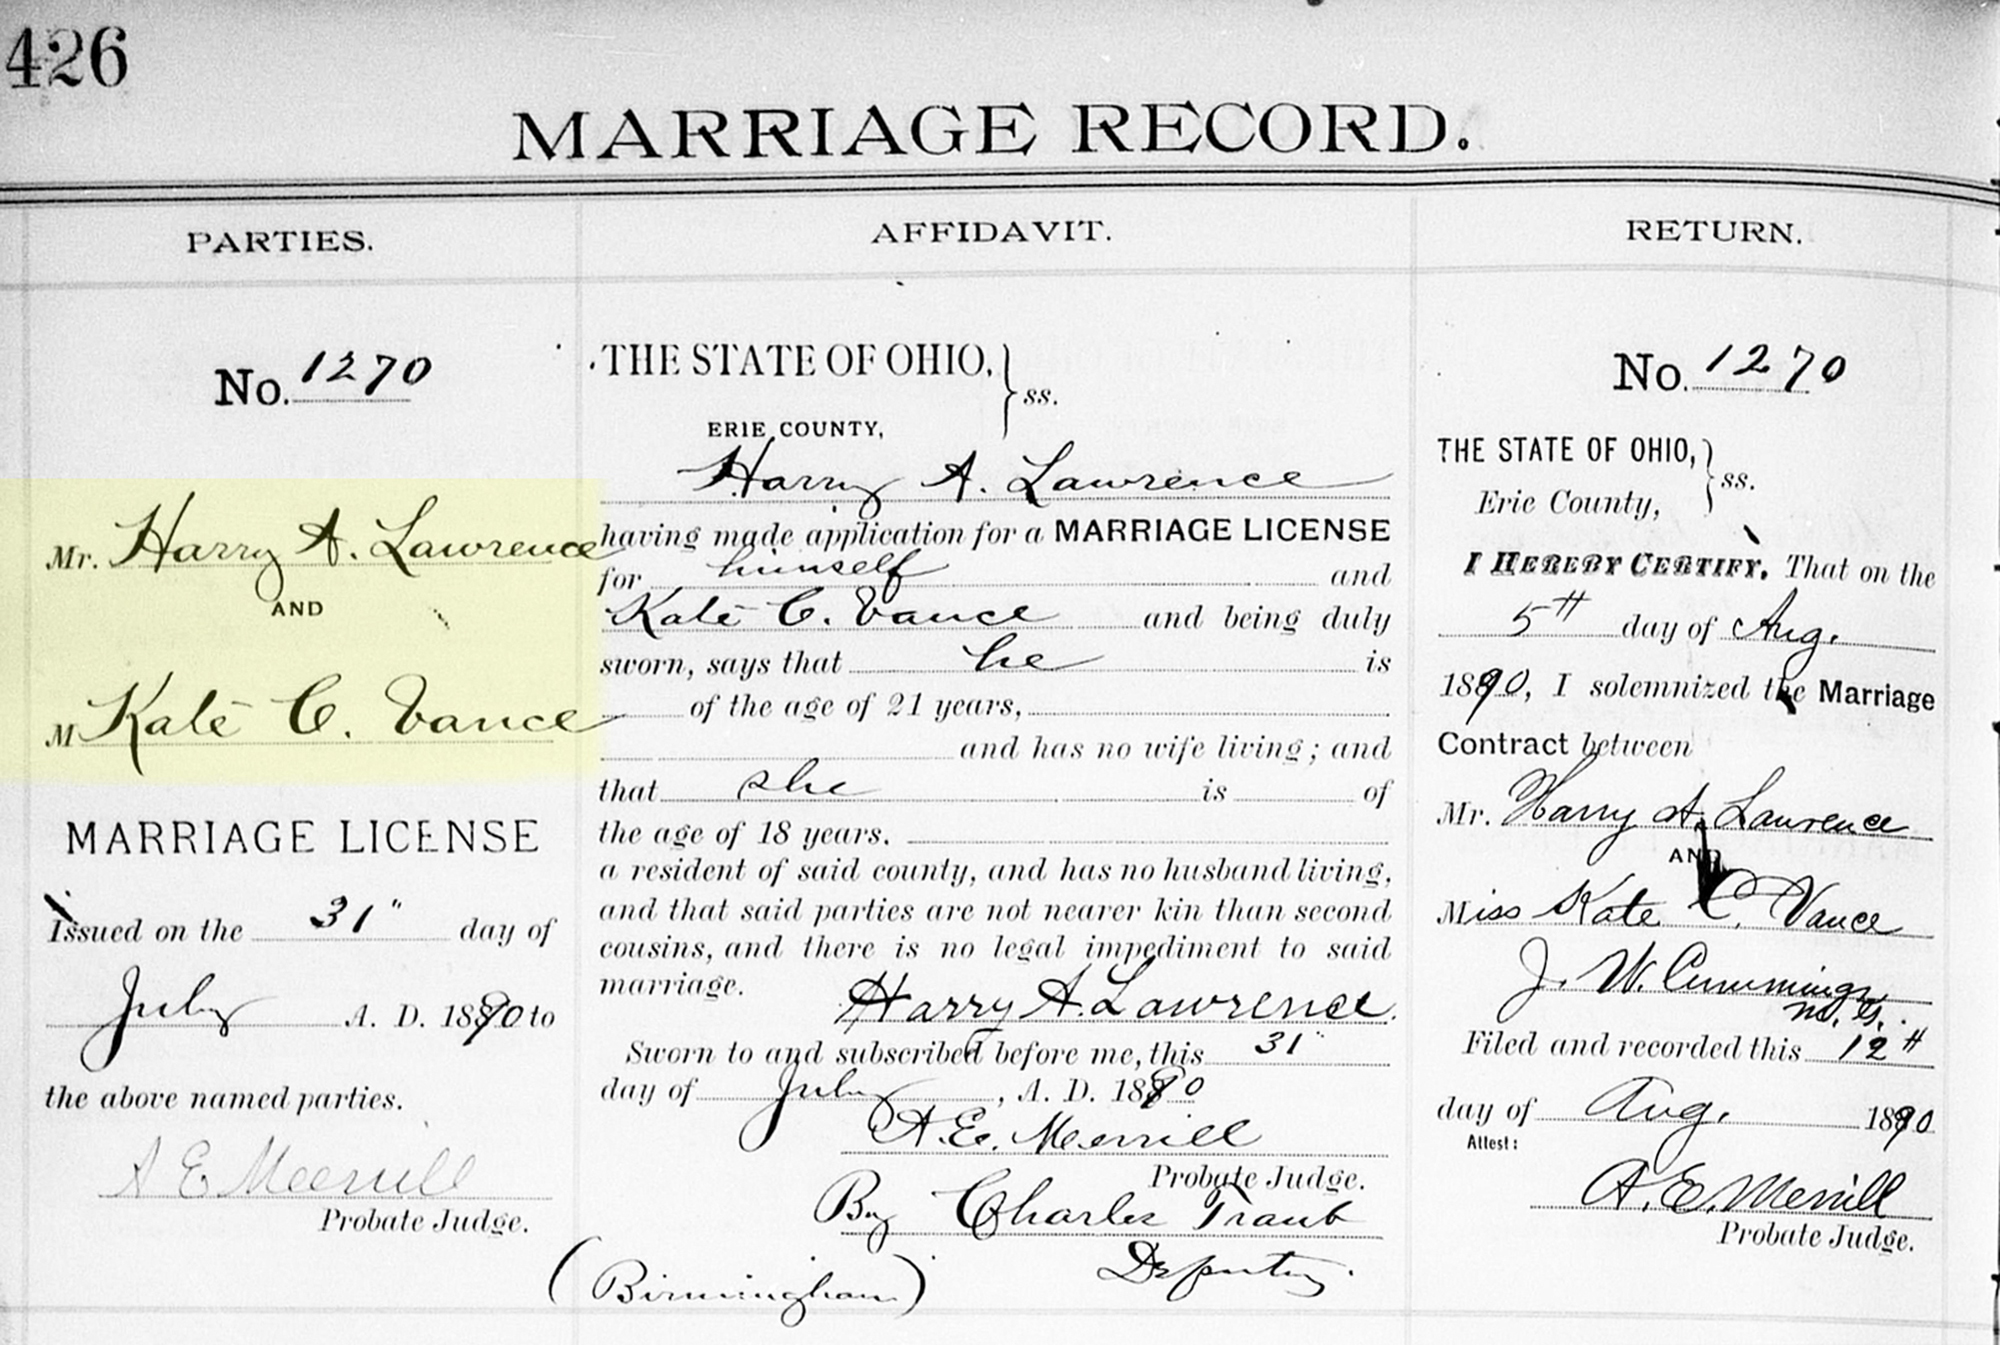 426
MARRIAGE RECORD.
PARTIES.
No. 1270
Mr. Harry A. Lawrence
AND
M Kate C. Vance
MARRIAGE LICENSE
Issued on the 31" day of
July A. D. 1890 to
the above named parties.
A E Merrill
Probate Judge.
AFFIDAVIT.
THE STATE OF OHIO, } ss.
ERIE COUNTY,
Harry A. Lawrence
having made application for a MARRIAGE LICENSE
for himself and
Kate C. Vance and being duly
sworn, says that he is
of the age of 21 years,
and has no wife living; and
that she is of
the age of 18 years.
a resident of said county, and has no husband living,
and that said parties are not nearer kin than second
cousins, and there is no legal impediment to said
marriage.
Harry A. Lawrence.
Sworn to and subscribed before me, this 31"
day of July, A. D. 1890
A. E. Merrill
Probate Judge.
By Charles Traub
Deputy.
(Birmingham)
RETURN.
No. 1270
THE STATE OF OHIO, } ss.
Erie County,
I HEREBY CERTIFY, That on the
5th day of Aug.
1890, I solemnized the Marriage
Contract between
Mr. Harry A. Lawrence
AND
Miss Kate C. Vance
J. W. Cummings
M. G.
Filed and recorded this 12th
day of Aug. 1890
Attest:
A. E. Merrill
Probate Judge.